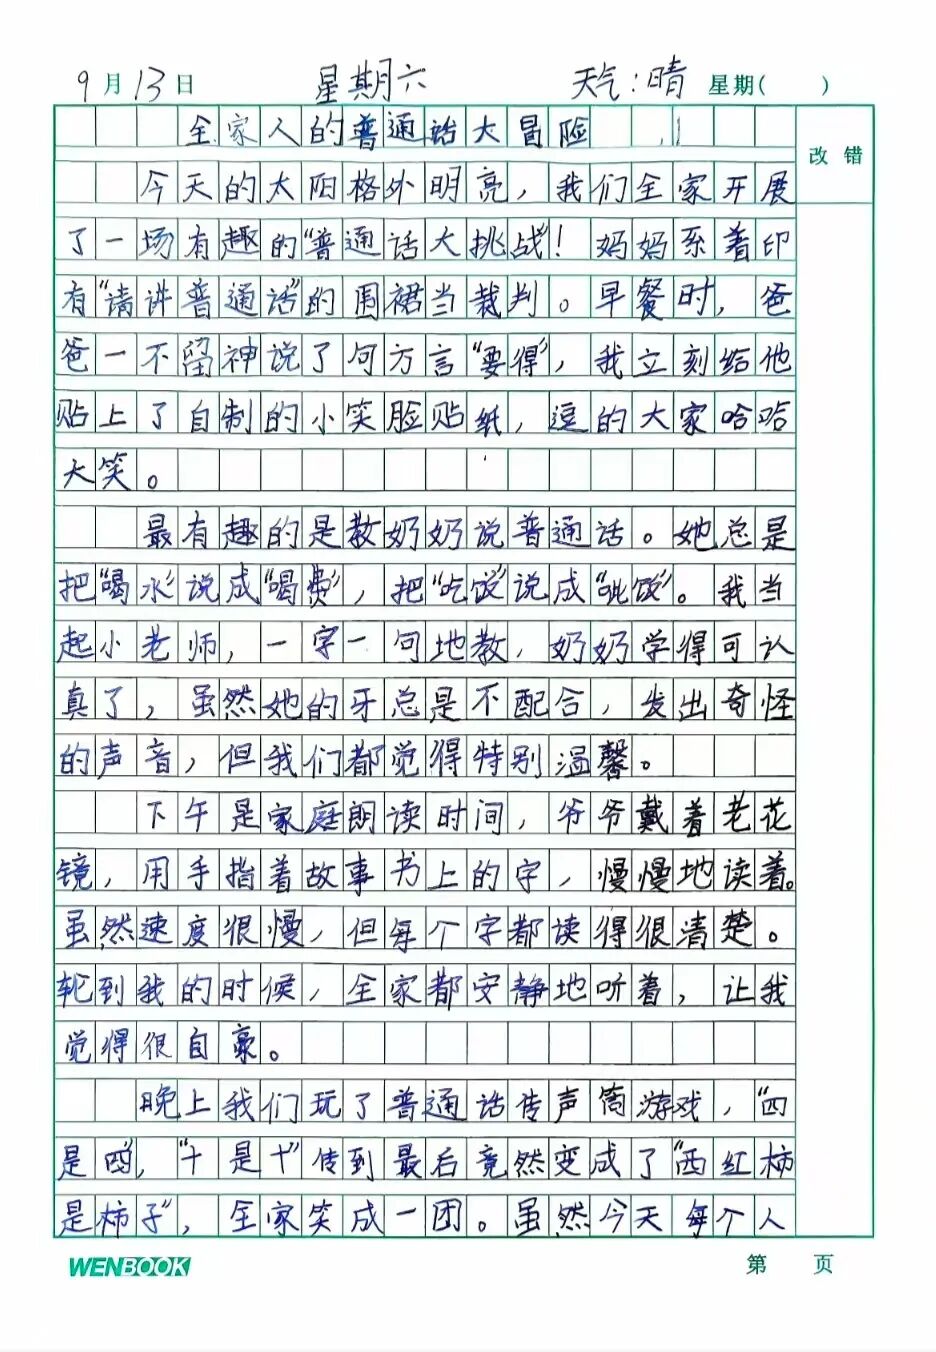 9月13日 星期六 天气:晴 星期( )
全家人的普通话大冒险
改错
今天的太阳格外明亮，我们全家开展
了一场有趣的“普通话大挑战”！妈妈系着印
有“请讲普通话”的围裙当裁判。早餐时，爸
爸一不留神说了句方言“要得”，我立刻给他
贴上了自制的小笑脸贴纸，逗的大家哈哈
大笑。
最有趣的是教奶奶说普通话。她总是
把“喝水”说成“喝费”，把“吃饭”说成“呲饭”。我当
起小老师，一字一句地教，奶奶学得可认
真了，虽然她的牙总是不配合，发出奇怪
的声音，但我们都觉得特别温馨。
下午是家庭朗读时间，爷爷戴着老花
镜，用手指着故事书上的字，慢慢地读着。
虽然速度很慢，但每个字都读得很清楚。
轮到我的时候，全家都安静地听着，让我
觉得很自豪。
晚上我们玩了普通话传声筒游戏，“四
是四”，“十是十”传到最后竟然变成了“西红柿
是柿子”，全家笑成一团。虽然今天每个人
WENBOOK 第 页